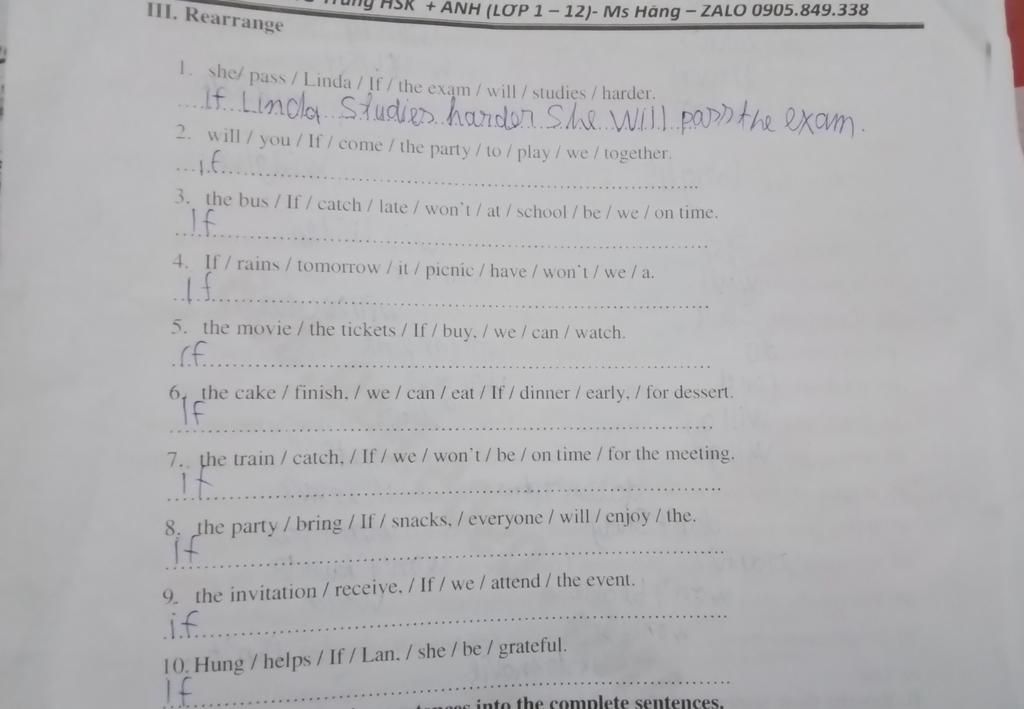 Trung HSK + ANH (LỚP 1 – 12)- Ms Hãng – ZALO 0905.849.338
III. Rearrange
1. she/ pass / Linda / If / the exam / will / studies / harder.
If Linda Studies harder She will pass the exam.
2. will / you / If / come / the party / to / play / we / together.
if
3. the bus / If / catch / late / won't / at / school / be / we / on time.
If
4. If / rains / tomorrow / it / picnic / have / won't / we / a.
If
5. the movie / the tickets / If / buy, / we / can / watch.
If
6. the cake / finish, / we / can / eat / If / dinner / early, / for dessert.
If
7.. the train / catch, / If / we / won't / be / on time / for the meeting.
If
8. the party / bring / If / snacks, / everyone / will / enjoy / the.
If
9. the invitation / receive, / If / we / attend / the event.
if
10. Hung / helps / If / Lan, / she / be / grateful.
If
into the complete sentences.